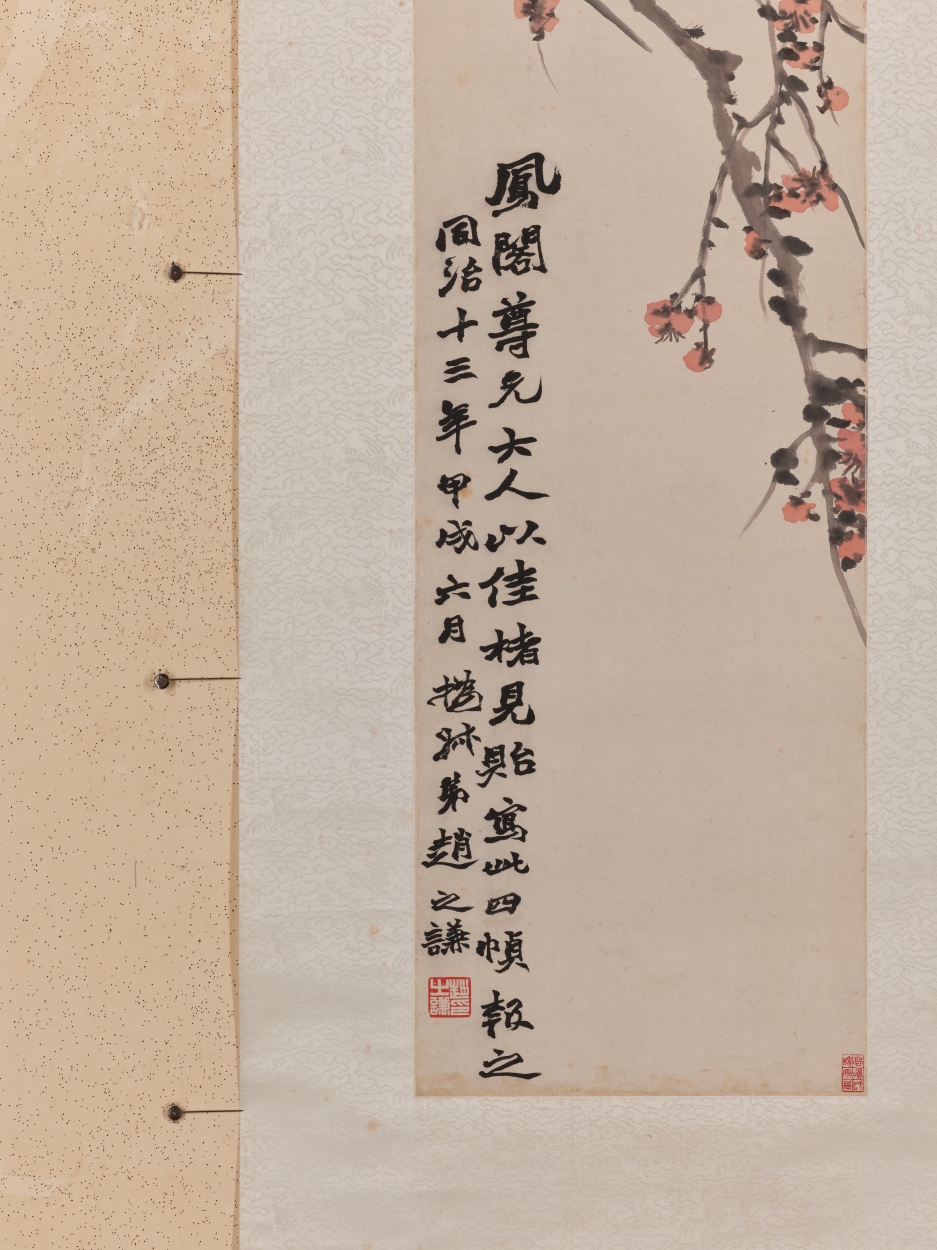 鳳閣尊兄大人以佳楮見貽寫此四幀報之
同治十三年甲戌六月撝叔弟趙之謙
趙之謙印